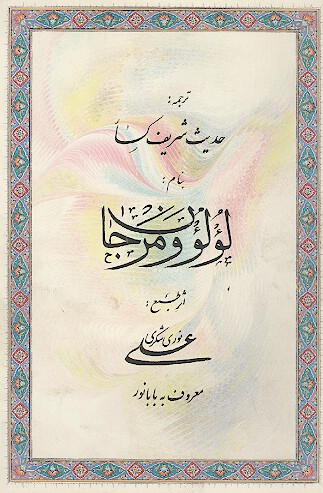 ترجمه:
حدیث شریف کساء
بنام:
لؤلؤ و مرجان
اثر طبع:
علی نوری شکری
معروف به بابانور